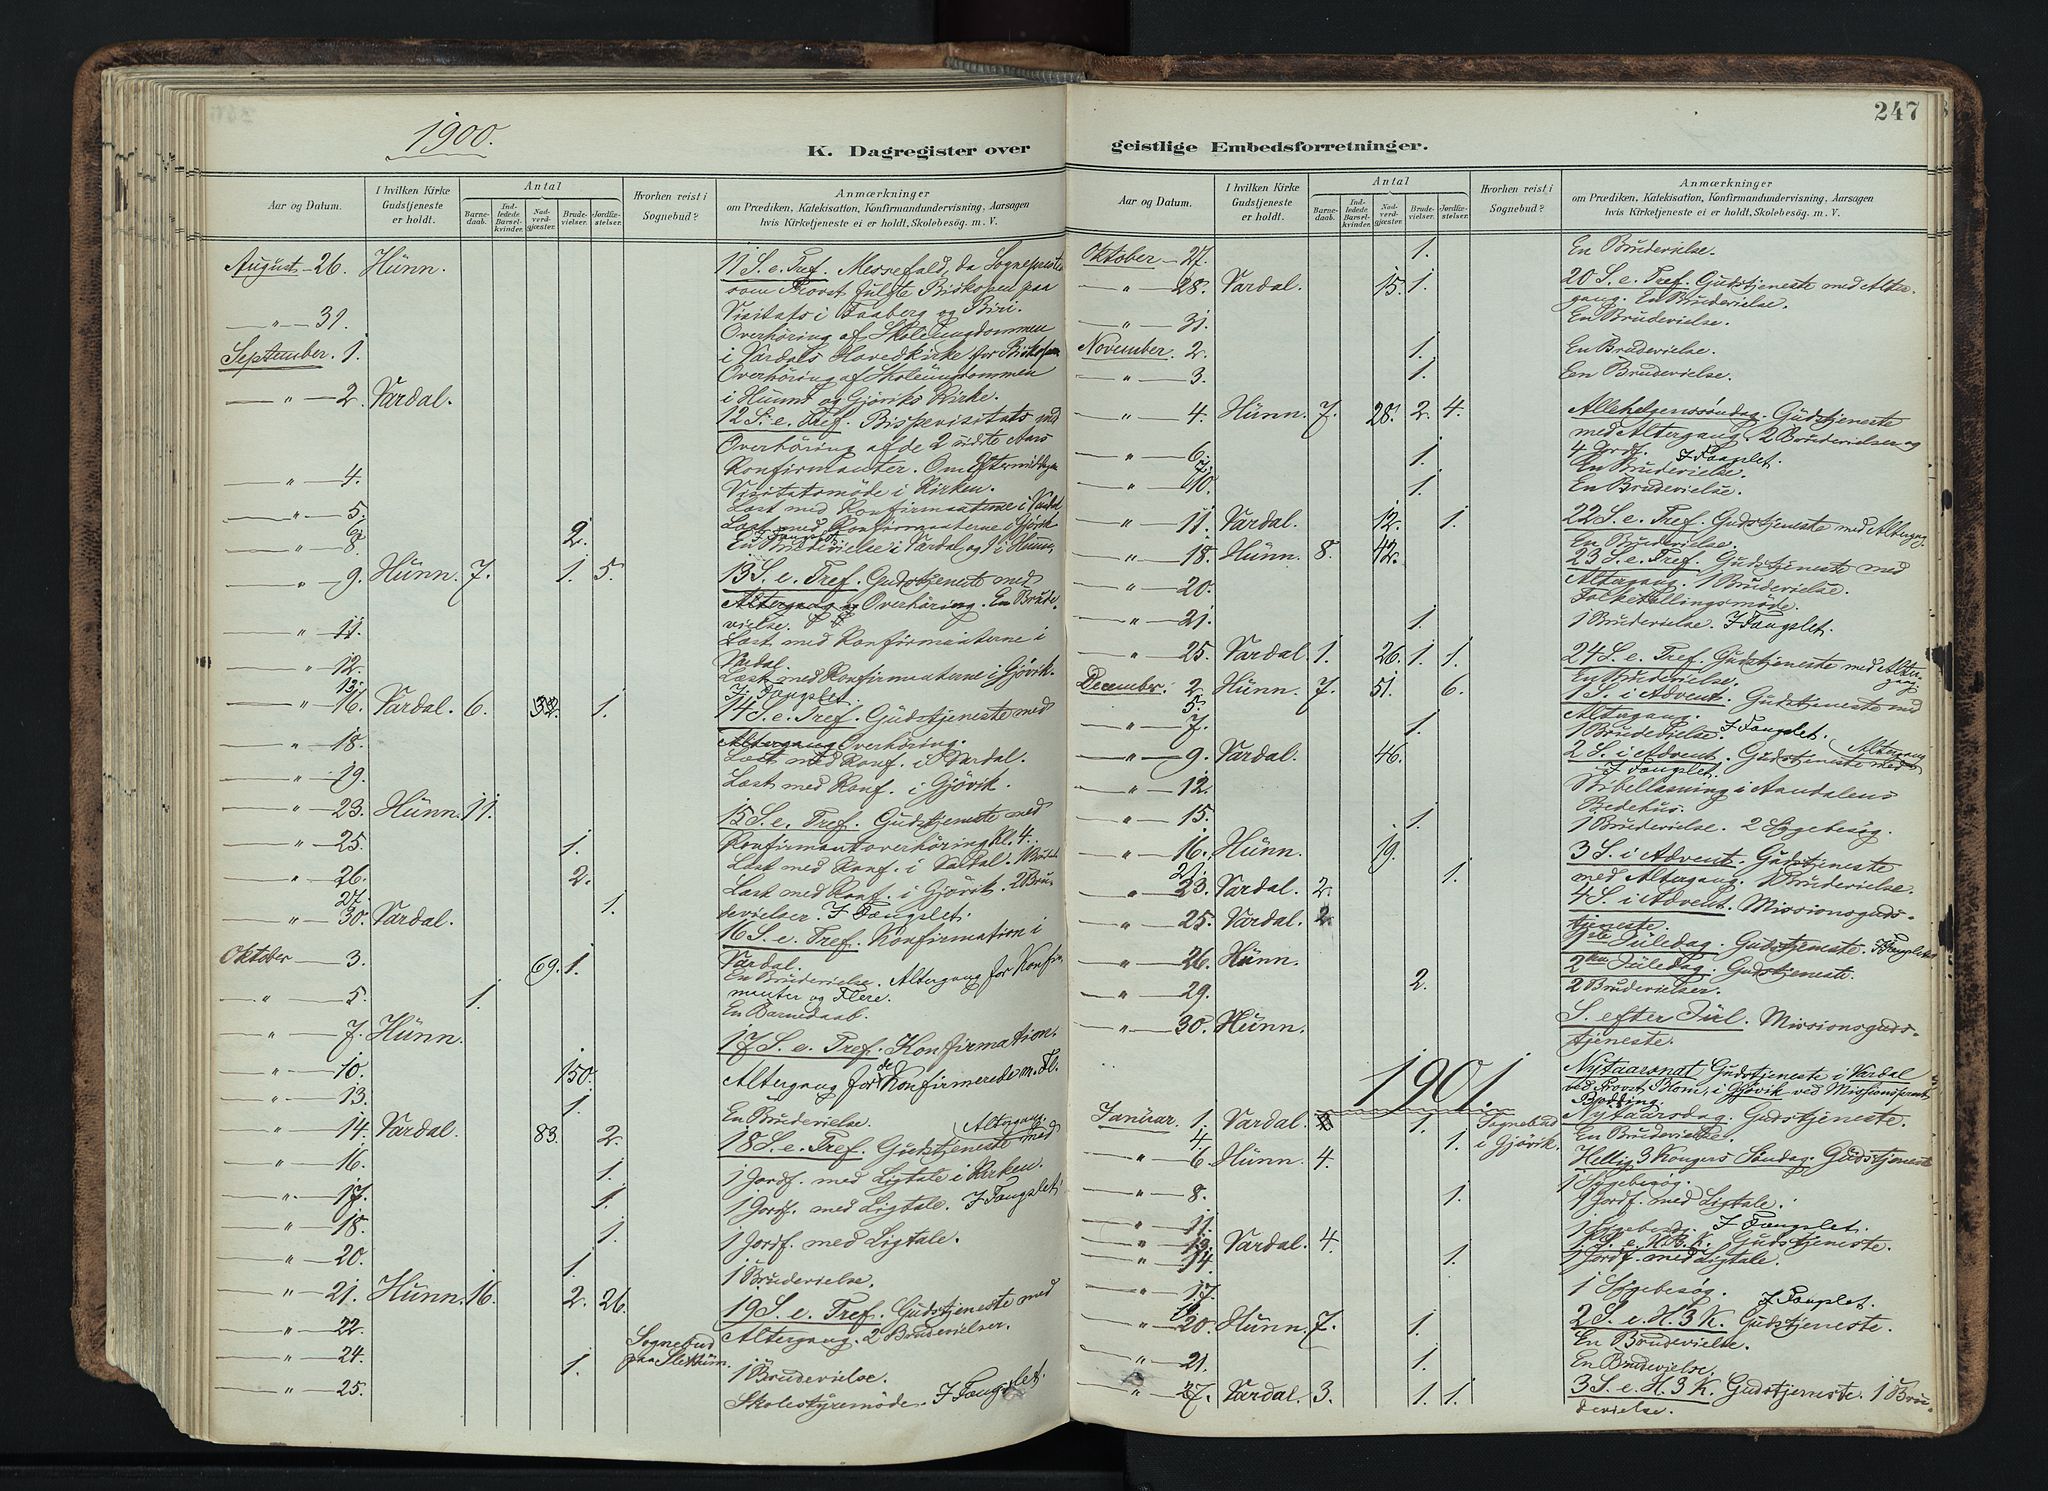 1900.
K. Dagregister over
Aar og Datum.
I hvilken Kirke Gudstjeneste er holdt.
Antal
Barne-daab.
Ind-ledede Barsel-kvinder.
Nad-verd-gjæster.
Brude-vielser.
Jordfæ-stelser.
Hvorhen reist i Sognebud?
Anmærkninger
om Prædiken, Katekisation, Konfirmandundervisning, Aarsagen
hvis Kirketjeneste ei er holdt, Skolebesøg. m. V.
August 26. Hunn. 11 S. e. Tref. Messefald, da Sognepresten
som Provst fulgte Biskopen paa
Visitats i Faaberg og Biri.
" 31. Overhøring af Skoleungdommen
i Vardals Hovedkirke for Biskopen
September 1. Overhøring af Skoleungdommen
i Hunns og Gjøviks Kirke.
" 2. Vardal. 12 S. e. Tref. Bispevisitats med
Overhøring af de 2 sidste Aars
Konfirmanter. Om Eftermiddagen
Visitatsmøde i Kirken.
" 4. Læst med Konfirmanterne i Vardal
" 5. Læst med Konfirmanterne i Gjøvik
6. I Fængslet.
" 8. 2. En Brudevielse i Vardal og 1 i Hunn.
" 9. Hunn. 7. 1. 5. 13 S. e. Tref. Gudstjeneste med
Altergang og Overhøring. En Brude-
vielse.
" 11. Læst med Konfirmanterne i
Vardal.
" 12. Læst med Konfirmanterne i Gjøvik.
13. I Fængslet.
" 16. Vardal. 6. 32. 1. 14 S. e. Tref. Gudstjeneste med
Altergang Overhøring.
" 18. Læst med Konf. i Vardal.
" 19. Læst med Konf. i Gjøvik.
" 23. Hunn. 11. 15 S. e. Tref. Gudstjeneste med
Konfirmantoverhøring Kl. 4.
" 25. 1. Læst med Konf. i Vardal. 1 Brudev.
" 26. 2. Læst med Konf. i Gjøvik. 2 Bru-
27. 1. devielser. I Fængslet.
" 30. Vardal. 16 S. e. Tref. Konfirmation i
Vardal.
Oktober 3. 69. 1. En Brudevielse. Altergang for Konfir-
manter og Flere.
" 5. 1. En Barnedaab.
" 7. Hunn. 17 S. e. Tref. Konfirmation.
" 10. 150. Altergang for de Konfirmerede m. Fl.
" 13. 1. En Brudevielse.
" 14. Vardal. 83. 2. 18 S. e. Tref. Gudstjeneste med Altergang.
" 16. 1. 1 Jordf. med Ligtale i Kirken.
" 17. 1. 1 Jordf. med Ligtale. I Fængslet.
" 18. 1. 1 Jordf. med Ligtale.
" 20. 1. 1 Brudevielse.
" 21. Hunn. 16. 2. 26. 19 S. e. Tref. Gudstjeneste med
Altergang. 2 Brudevielser.
" 22. Sognebud paa Slettum.
" 24. 1. 1 Brudevielse.
" 25. Skolestyremøde. I Fængslet.
247
geistlige Embedsforretninger.
Aar og Datum.
I hvilken Kirke Gudstjeneste er holdt.
Antal
Barne-daab.
Ind-ledede Barsel-kvinder.
Nad-verd-gjæster.
Brude-vielser.
Jordfæ-stelser.
Hvorhen reist i Sognebud?
Anmærkninger
om Prædiken, Katekisation, Konfirmandundervisning, Aarsagen
hvis Kirketjeneste ei er holdt, Skolebesøg. m. V.
Oktober 27. 1. En Brudevielse.
" 28. Vardal. 15. 1. 20 S. e. Tref. Gudstjeneste med Alter-
gang. En Brudevielse.
" 31. En Brudevielse.
November 2. 1. En Brudevielse.
" 3. 1. En Brudevielse.
" 4. Hunn. 7. 28. 2. 4. Allehelgenssøndag. Gudstjeneste
med Altergang. 2 Brudevielser og
4 Jordf. I Fængslet.
" 6. 1. En Brudevielse.
7.
" 10. 1. En Brudevielse.
" 11. Vardal. 12. 1. 22 S. e. Tref. Gudstjeneste med Altergang.
En Brudevielse.
" 18. Hunn. 8. 42. 23 S. e. Tref. Gudstjeneste med
Altergang. 1 Brudevielse.
" 20. Folketællingsmøde.
" 21. 1. 1 Brudevielse. I Fængslet.
" 25. Vardal. 1. 26. 1. 1. 24 S. e. Tref. Gudstjeneste med Alter-
gang. En Brudevielse.
December 2. Hunn. 7. 51. 6. 1 S. i Advent. Gudstjeneste med
Altergang.
5. I Fængslet.
" 7. 1. 1 Brudevielse.
" 9. Vardal. 46. 2 S. i Advent. Gudstjeneste med Altergang
I Fængslet.
" 12. Bibellæsning i Aandalens
Bedehus.
" 15. 1. 1 Brudevielse. 2 Sygebesøg.
" 16. Hunn. 19. 3 S. i Advent. Gudstjeneste
med Altergang. 1 Brudevielse.
21. 1.
" 23. Vardal. 2. 4 S. i Advent. Missionsguds-
tjeneste.
" 25. Vardal. 2. 1ste Juledag. Gudstjeneste. I Fængslet
" 26. Hunn. 2den Juledag. Gudstjeneste.
" 29. 2. 2 Brudevielser.
" 30. Hunn. S. efter Jul. Missionsguds-
tjeneste.
Nytaarsnat Gudstjeneste i Vardal
ved Provst Blom, i Gjøvik ved Missionsprest
Bødding.
1901.
Januar 1. Vardal. 1. Nytaarsdag. Gudstjeneste.
En Brudevielse.
4. 1. Sognebud i Gjøvik.
" 6. Hunn. 4. Hellig 3 Kongers Søndag. Gudstjeneste
1 Sygebesøg.
" 8. 1. 1 Jordf. med Ligtale.
" 11. 1 Sygebesøg. I Fængslet.
" 13. Vardal. 4. 1 S. e. H. 3 K. Gudstjeneste.
" 14. 1. 1 Jordf. med Ligtale.
" 17. 1 Sygebesøg.
I Fængslet.
" 20. Hunn. 7. 1. 2 S. e. H. 3 K. Gudstjeneste.
En Brudevielse.
" 21. 1. En Brudevielse.
" 27. Vardal. 3. 1. 1. 3 S. e. H. 3 K. Gudstjeneste. 1 Bru-
devielse.